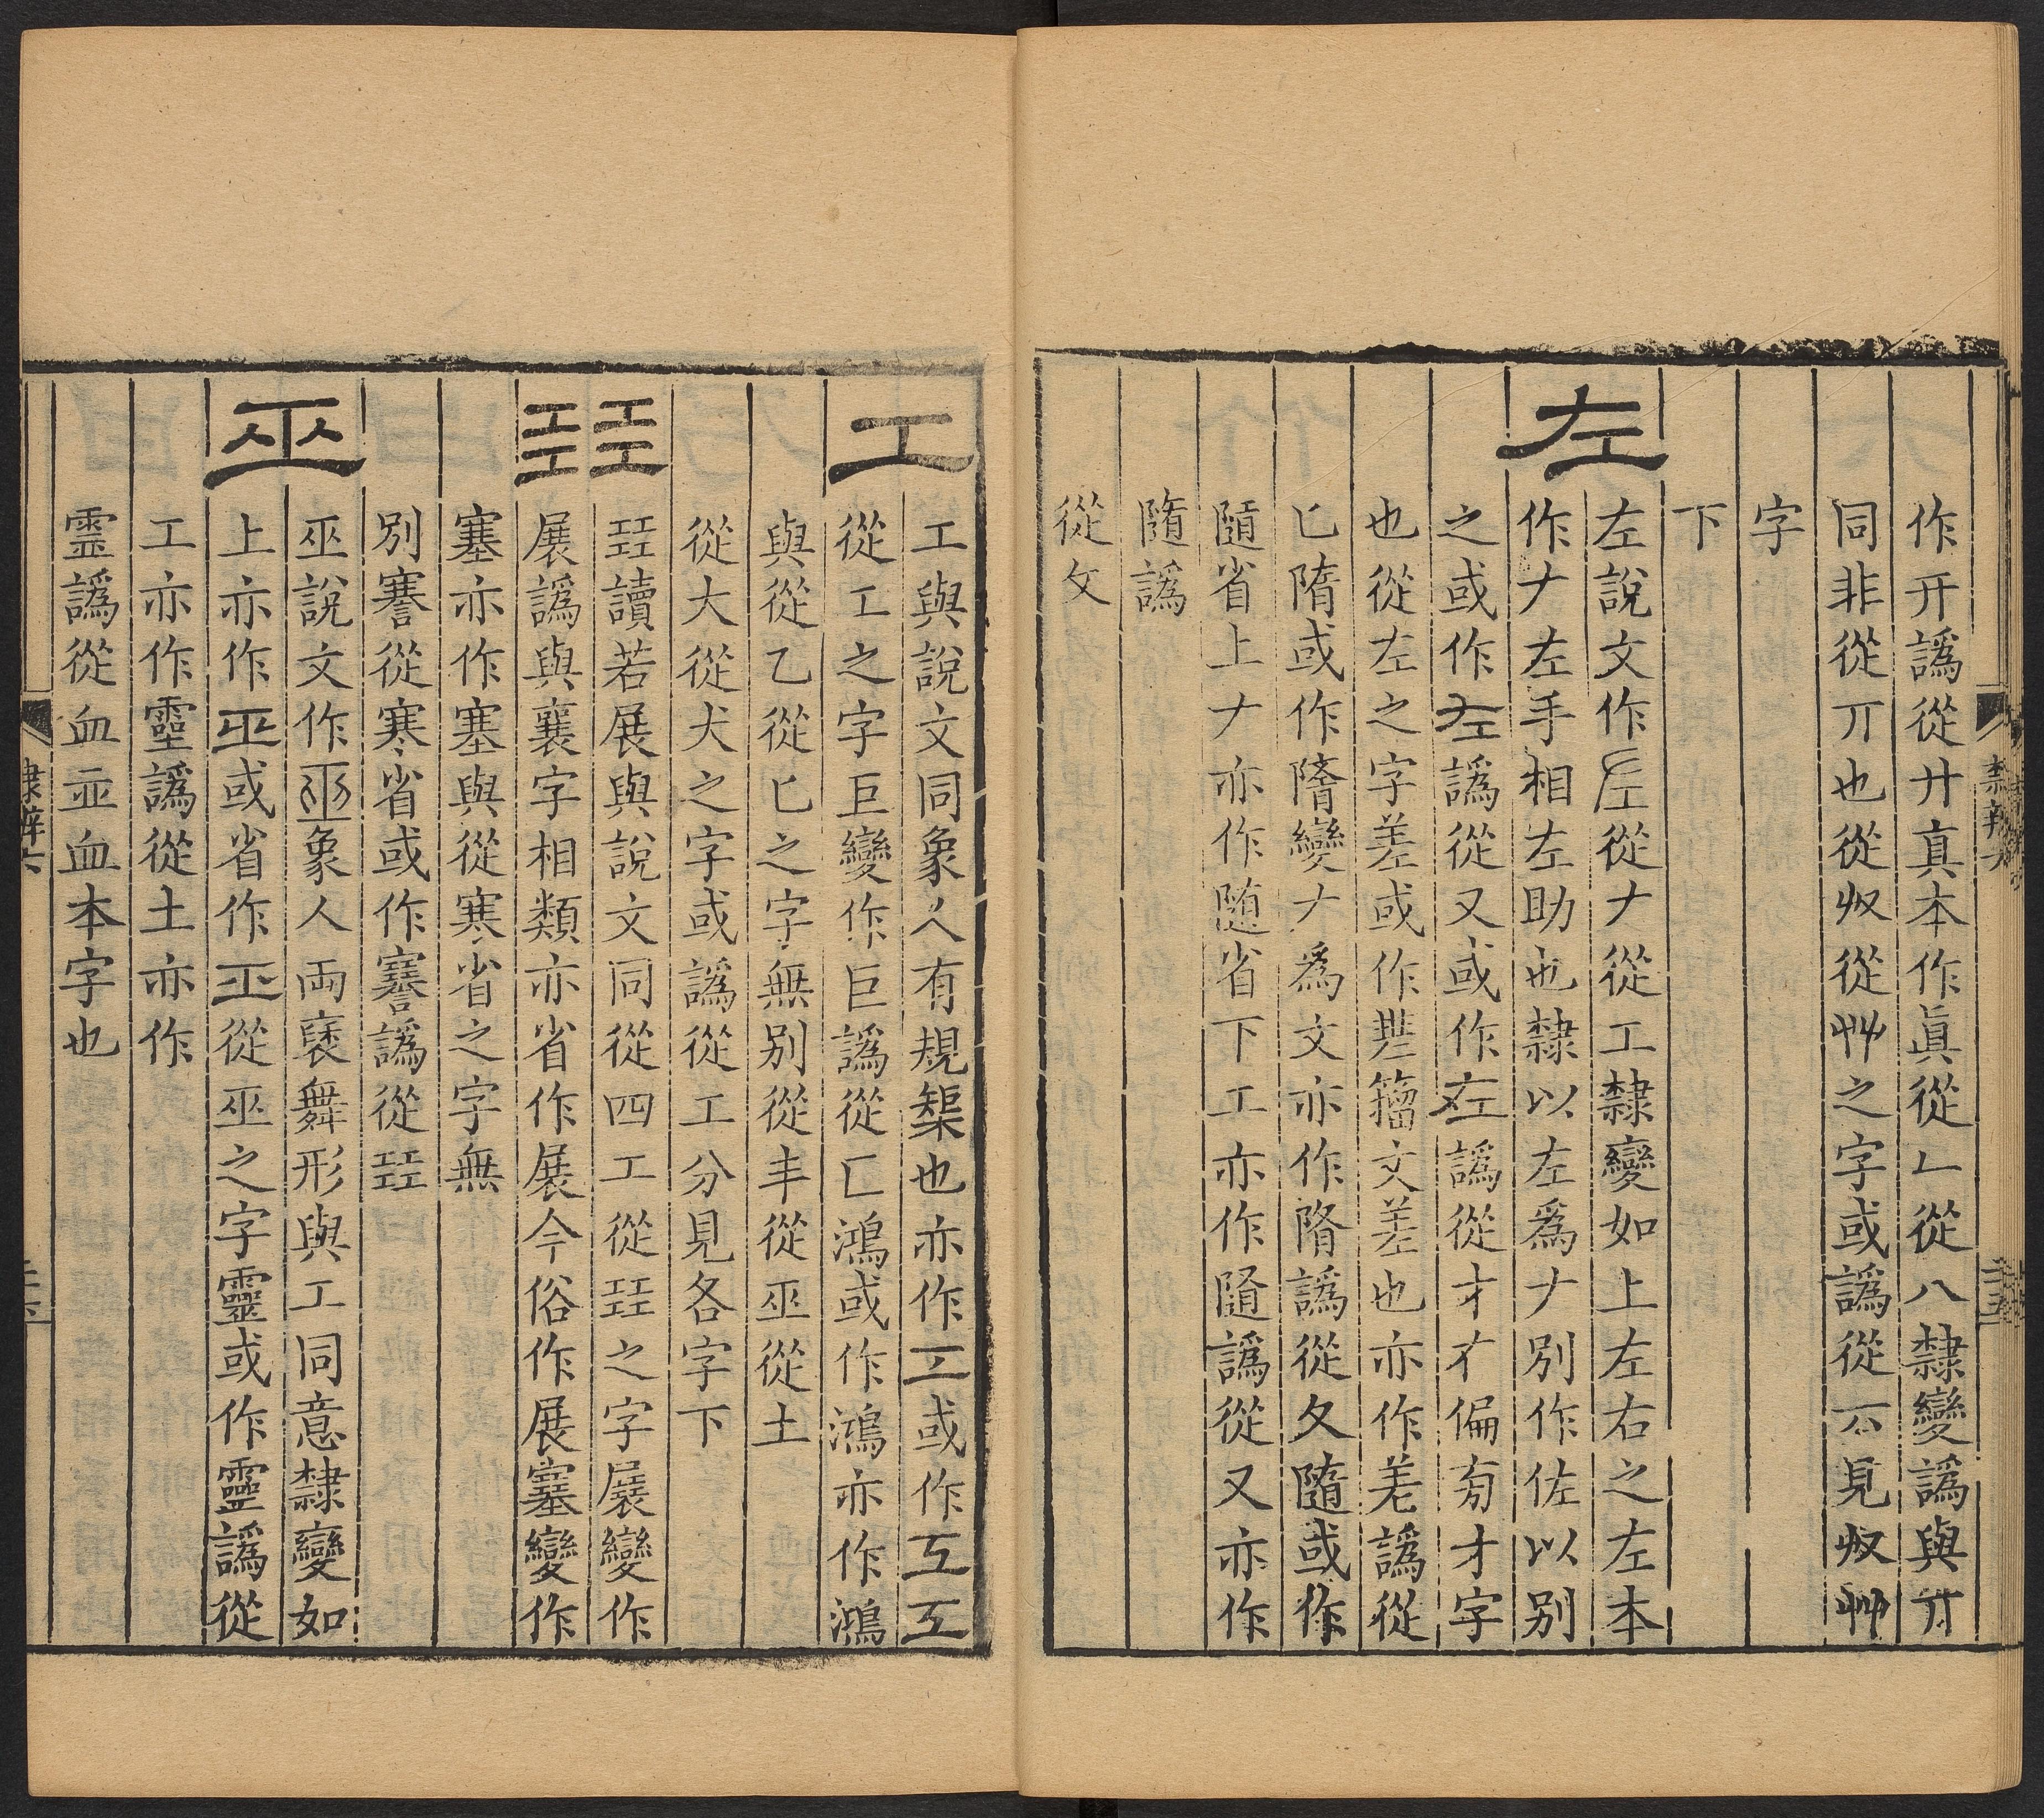 作开譌從廾真本作眞從𠃊從八隸變譌與丌
同非從丌也從収從艸之字或譌從𠀉見収艸
字
下
左
左說文作𠂇從𠂇從工隸變如上左右之左本
作𠂇左手相左助也隸以左爲𠂇別作佐以別
之或作左譌從又或作左譌從才才偏旁才字
也從左之字差或作𢀩籀文差也亦作羌譌從
匕隋或作隋變𠂇爲文亦作隋譌從夂隨或作
隨省上𠂇亦作随省下工亦作隨譌從又亦作
隨譌
從文
隸辨六
二十五
工
工與說文同象人有規榘也亦作工或作工工
從工之字巨變作巨譌從匚鴻或作鴻亦作鴻
與從乙從匕之字無別從丰從巫從土
從大從犬之字或譌從工分見各字下
㠭
㠭讀若展與說文同從四工從㠭之字展變作
展譌與襄字相類亦省作展今俗作展𡫳變作
塞亦作塞與從寒省之字無
別謇從寒省或作謇譌從㠭
巫
巫說文作巫象人兩褎舞形與工同意隸變如
上亦作巫或省作巫從巫之字靈或作靈譌從
工亦作𩆜譌從土亦作
霊譌從血𠀃血本字也
隸辨六